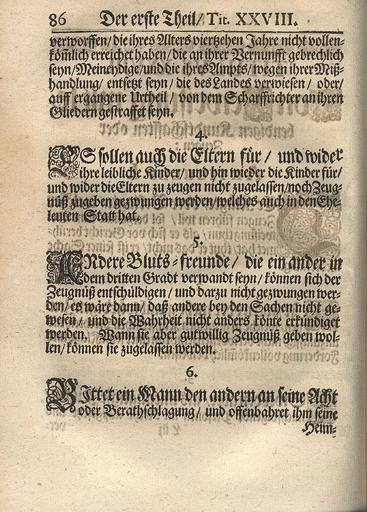 86 Der erste Theil/ Tit. XXVIII.
verworffen/ die ihres Alters viertzehen Jahre nicht vollen-
köm̃lich erreichet haben/ die an ihrer Vernunfft gebrechlich
seyn/ Meineydige/ und die ihres Ampts/ wegen ihrer Miß-
handlung/ entsetzt seyn/ die des Landes verwiesen/ oder/
auff ergangene Urtheil/ von dem Scharffrichter an ihren
Gliedern gestraffet seyn.
4.
ES sollen auch die Eltern für/ und wider
ihre leibliche Kinder/ und hin wieder die Kinder für/
und wider die Eltern zu zeugen nicht zugelassen/ noch Zeug-
nüß zugeben gezwungen werden/ welches auch in den Ehe-
leuten Statt hat.
5.
ANdere Bluts-freunde/ die ein ander in
dem dritten Gradt verwandt seyn/ können sich der
Zeugnüß entschüldigen/ und darzu nicht gezwungen wer-
den/ es wäre dann/ daß andere bey den Sachen nicht ge-
wesen/ und die Wahrheit nicht anders könte erkündiget
werden. Wann sie aber gutwillig Zeugnüß geben wol-
len/ können sie zugelassen werden.
6.
BIttet ein Mann den andern an seine Acht
oder Berathschlagung/ und offenbahret ihm seine
Heim-